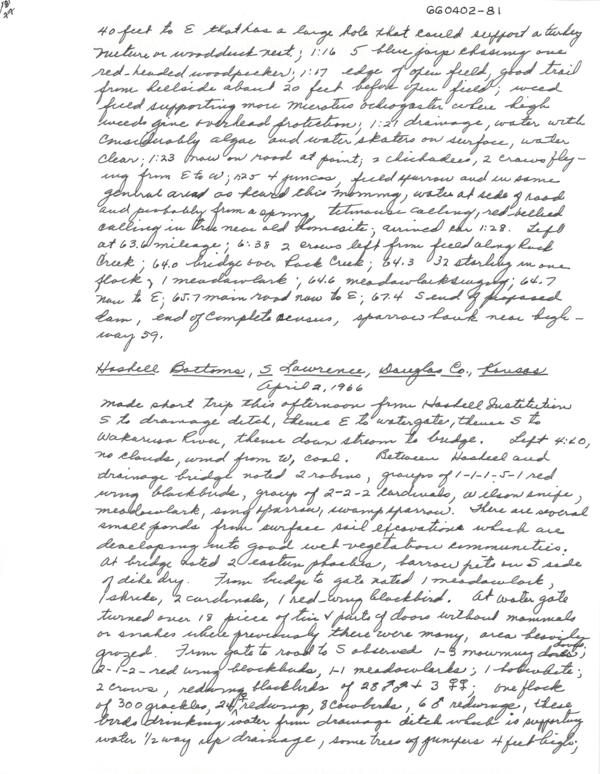 GG0402-81
40 feet to E that has a large hole that could support a turkey
vulture or wood duck nest; 1:16 5 blue jays chasing one
red-headed woodpecker; 1:17 edge of open field, good trail
from hillside about 20 feet before open field; weed
field supporting more microtus ochrogaster where high
weeds give overhead protection; 1:21 drainage, water with
considerably algae and water skaters on surface, water
clear; 1:23 now on road at point; 2 chickadees, 2 crows fly-
ing from E to W; 1:25 4 juncos, field sparrow and in same
general area as heard this morning, water at side of road
and probably from a spring, titmouse calling, red-bellied
calling in tree near old homesite; arrived car 1:28. Left
at 63.6 mileage; 6:38 2 crows left from field along Rock
Creek; 64.0 bridge over Rock Creek; 64.3 32 starling in one
flock, 1 meadowlark; 64.6 meadowlark singing; 64.7
now to E; 65.7 main road now to E; 67.4 S end of proposed
dam, end of complete census, sparrow hawk near high-
way 59.
Haskell Bottoms, S Lawrence, Douglas Co., Kansas
April 2, 1966
made short trip this afternoon from Haskell Institution
S to drainage ditch, thence E to watergate, thence S to
Wakarusa River, thence down stream to bridge. Left
no clouds, wind from W, cool. Between Haskell and
drainage bridge noted 2 robins, groups of 1-1-1-5-1 red
wing blackbirds, group of 2-2-2 cardinals, wilson snipe,
meadowlark, song sparrow, swamp sparrow. There are several
small ponds from surface soil excavations which are
developing into good wet vegetation communities.
At bridge noted 2 eastern phoebes, barrow pits on S side
of dike dry. From bridge to gate noted 1 meadowlark,
1 shrike, 2 cardinals, 1 red-wing blackbird. At water gate
turned over 18 piece of tin & parts of doors without mammals
or snakes where previously there were many, area heavily
grazed. From gate to road to S observed 1-3 mourning doves;
2-1-2-red wing blackbirds, 1-1 meadowlarks; 1 bobwhite;
2 crows, redwing blackbirds of 28 ♂♂ + 3 ♀♀; one flock
of 300 grackles, 24 redwings, 8 cowbirds, 6 ♂ redwings, these
birds drinking water from drainage ditch which is supporting
water 1/2 way up drainage, some trees of junipers 4 feet high;